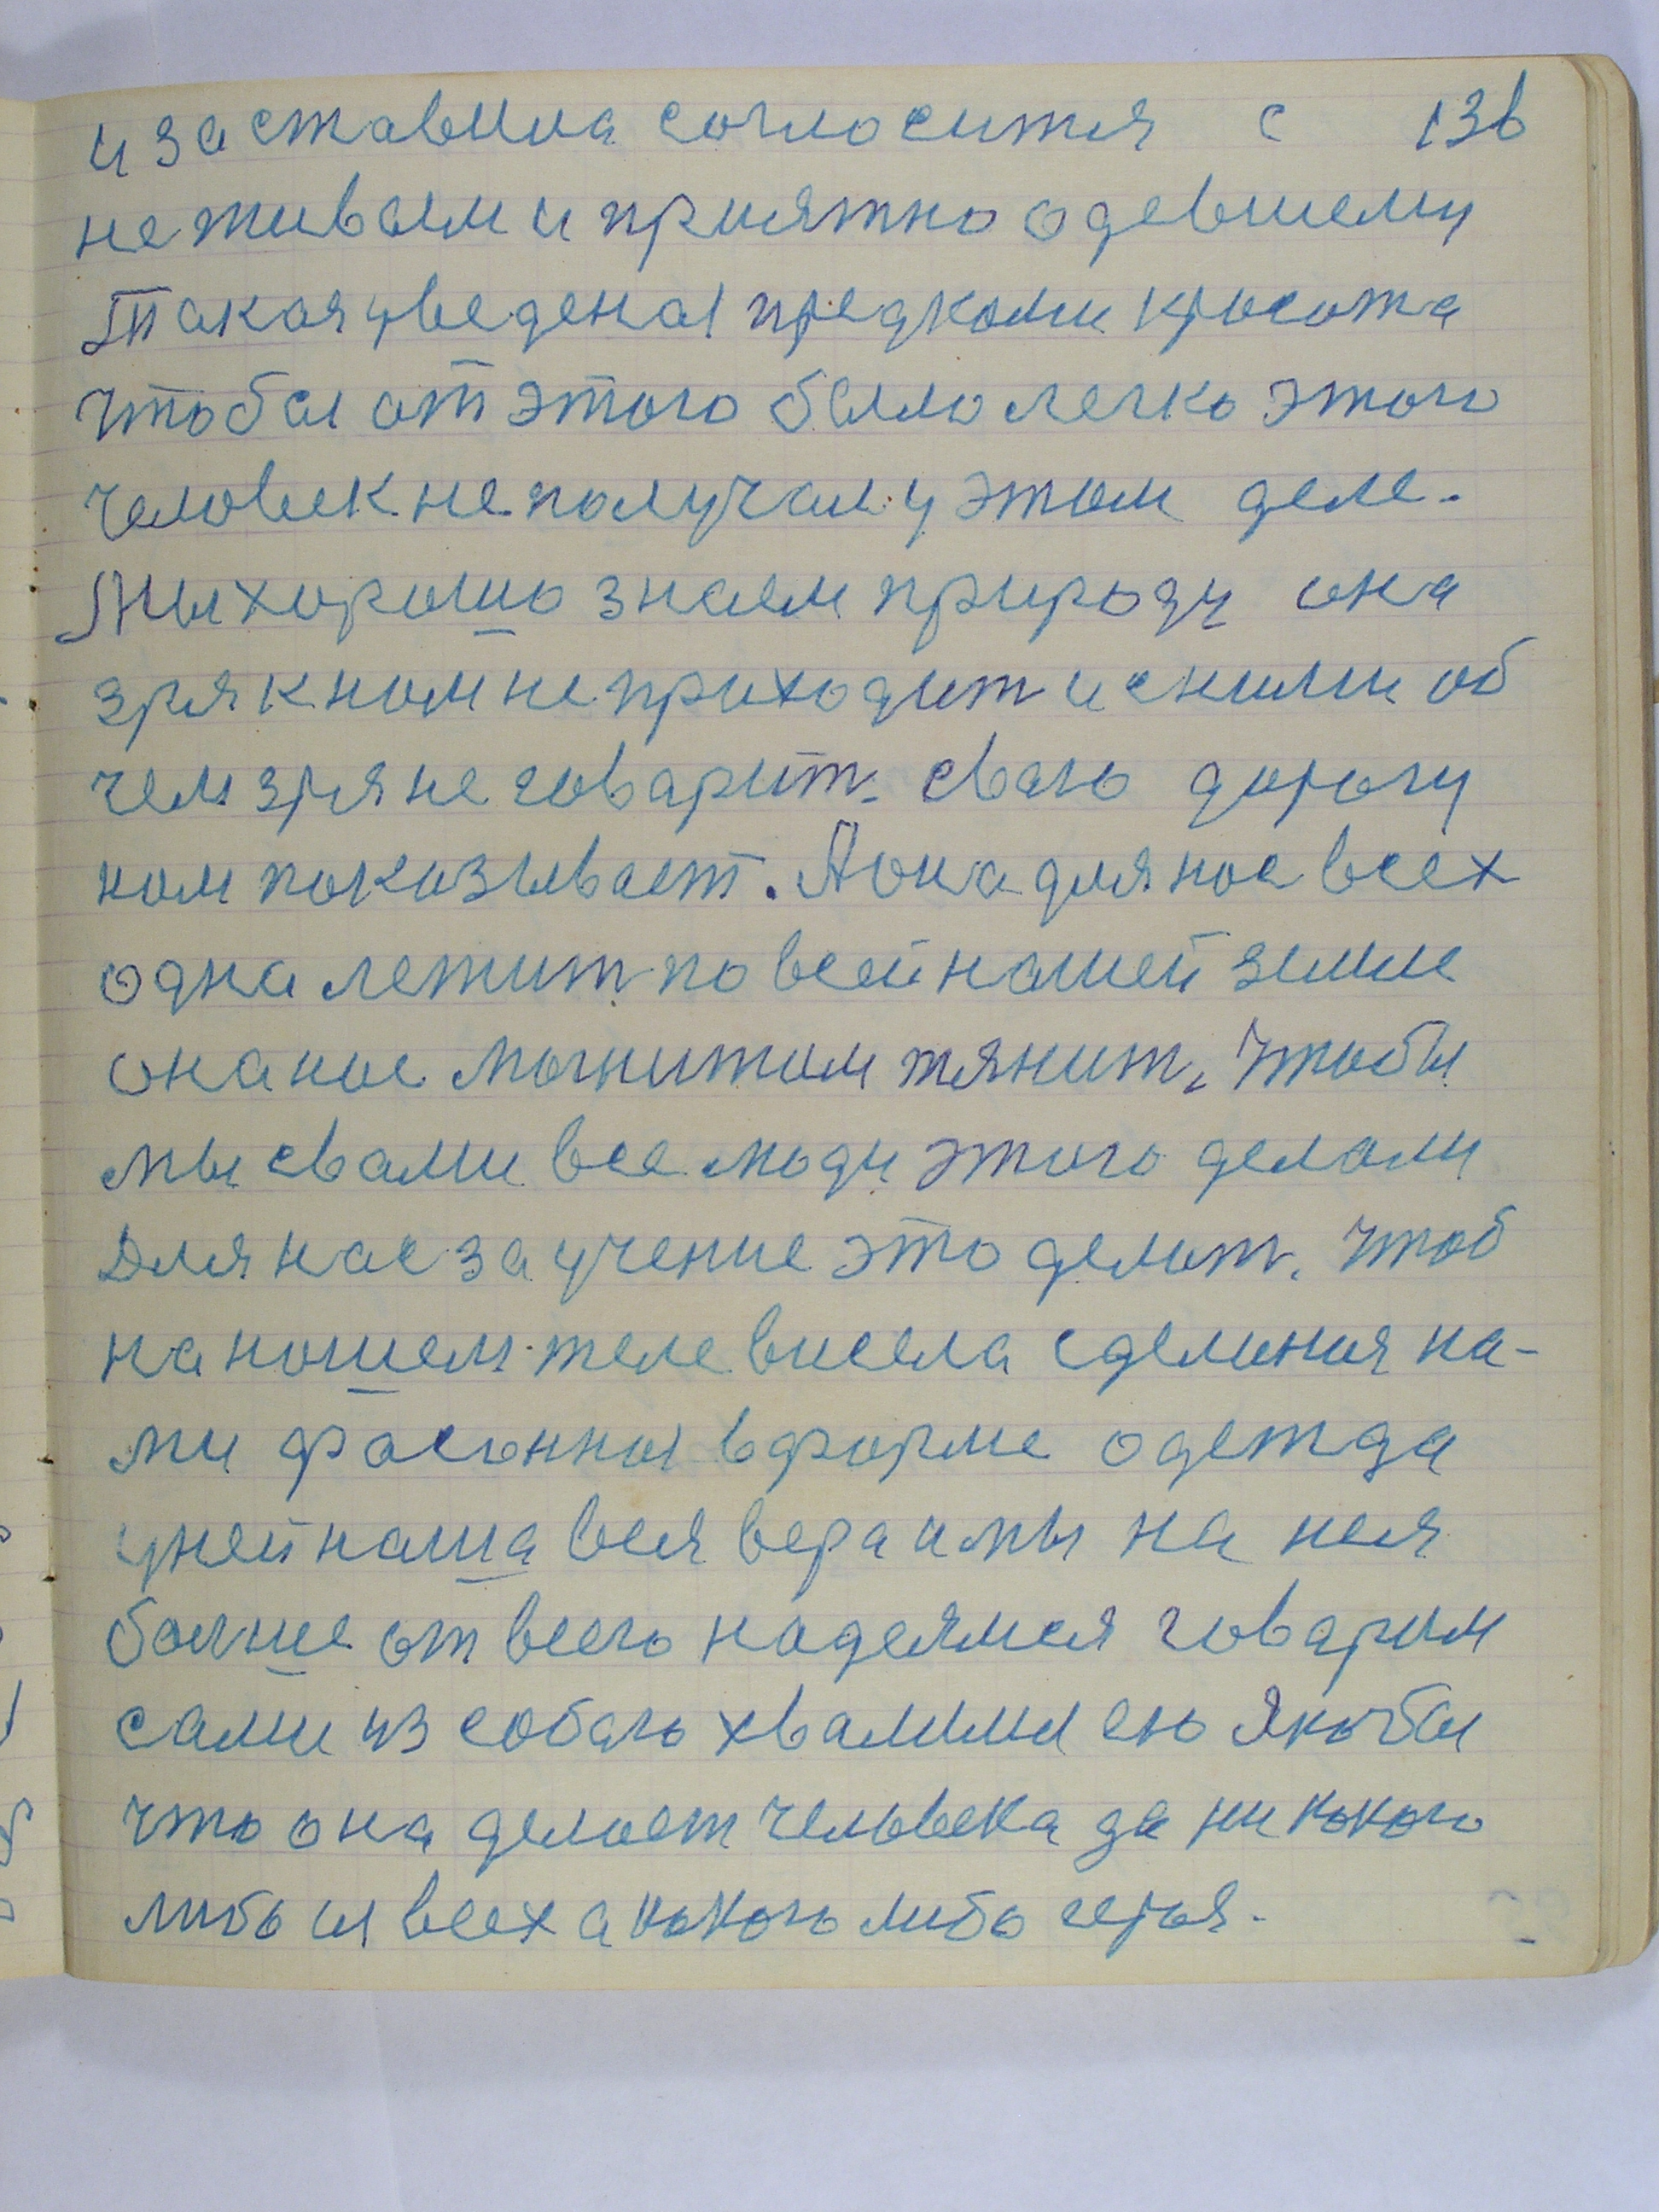 и заставила согласится с 136
неживым и приятно одевшему
Такая уведена предками красота
чтобы от этого было легко этого
человек не получал у этом деле.
Мы хорошо знаем природу она
зря к нам не приходит и снами об
чем зря не говарит. сваю дорогу
нам показывает. А она для нас всех
одна лежит по всей нашей земле
она нас магнитом тянит, чтобы
мы свами все люди этого делали
Для нас за учение это делат. чтоб
на нашем теле висела сделиная на-
ми фасонны в форме одежда
у ней наша вся вера и мы на нея
болше от всего надеямся говарим
сами из собаю хвалимы ею Якобы
что она делает человека за ни какого
либо из всех а какого либо героя.